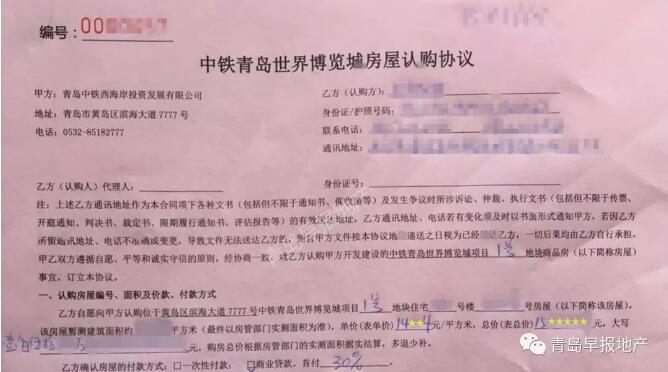 编号：00
中铁青岛世界博览城房屋认购协议
甲方：青岛中铁西海岸投资发展有限公司
乙方（认购方）：
地址：青岛市黄岛区滨海大道 7777 号
身份证/护照号码：
电话：0532-85182777
联系电话：
通讯地址：
乙方（认购人）代理人：
身份证号：
注：上述乙方通讯地址作为本合同项下各种文书（包括但不限于通知书、催收函等）及发生争议时所涉诉讼、仲裁、执行文书（包括但不限于传票、
开庭通知、判决书、裁定书、限期履行通知书、评估报告等）的有效送达地址，乙方通讯地址、电话若有变化须及时以书面形式通知甲方，若因乙方
所留通讯地址、电话不准确或变更，导致文件无法送达乙方的，甲方文件按本协议地 递送之日视为已经 达乙方，一切后果均由乙方自行承担。
甲乙双方遵循自愿、平等和诚实守信的原则，经协商一致，就乙方认购甲方开发建设的中铁青岛世界博览城项目 1号 地块商品房（以下简称房屋）
事宜，订立本协议。
一、认购房屋编号、面积及价款、付款方式
乙方自愿向甲方认购位于黄岛区滨海大道 7777 号中铁青岛世界博览城项目 1号 地块住宅 号楼 号房屋（以下简称该房屋）。
该房屋暂测建筑面积约 平方米（最终以房管部门实测面积为准），单价(表单价) 14**4 元/平方米，总价(表总价) 15***** 元，大写
万 元，购房总价根据房管部门的实测面积结算，多退少补。
乙方确认房屋的付款方式：□一次性付款；☑商业贷款，首付 30%
青岛早报地产